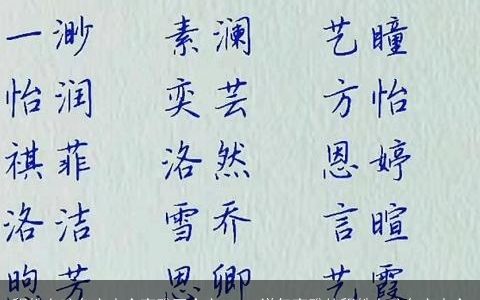 一渺 素澜 艺瞳
怡润 奕芸 方怡
祺菲 洛然 恩婷
洛洁 雪乔 言暄
昫芳 思卿 艺霞